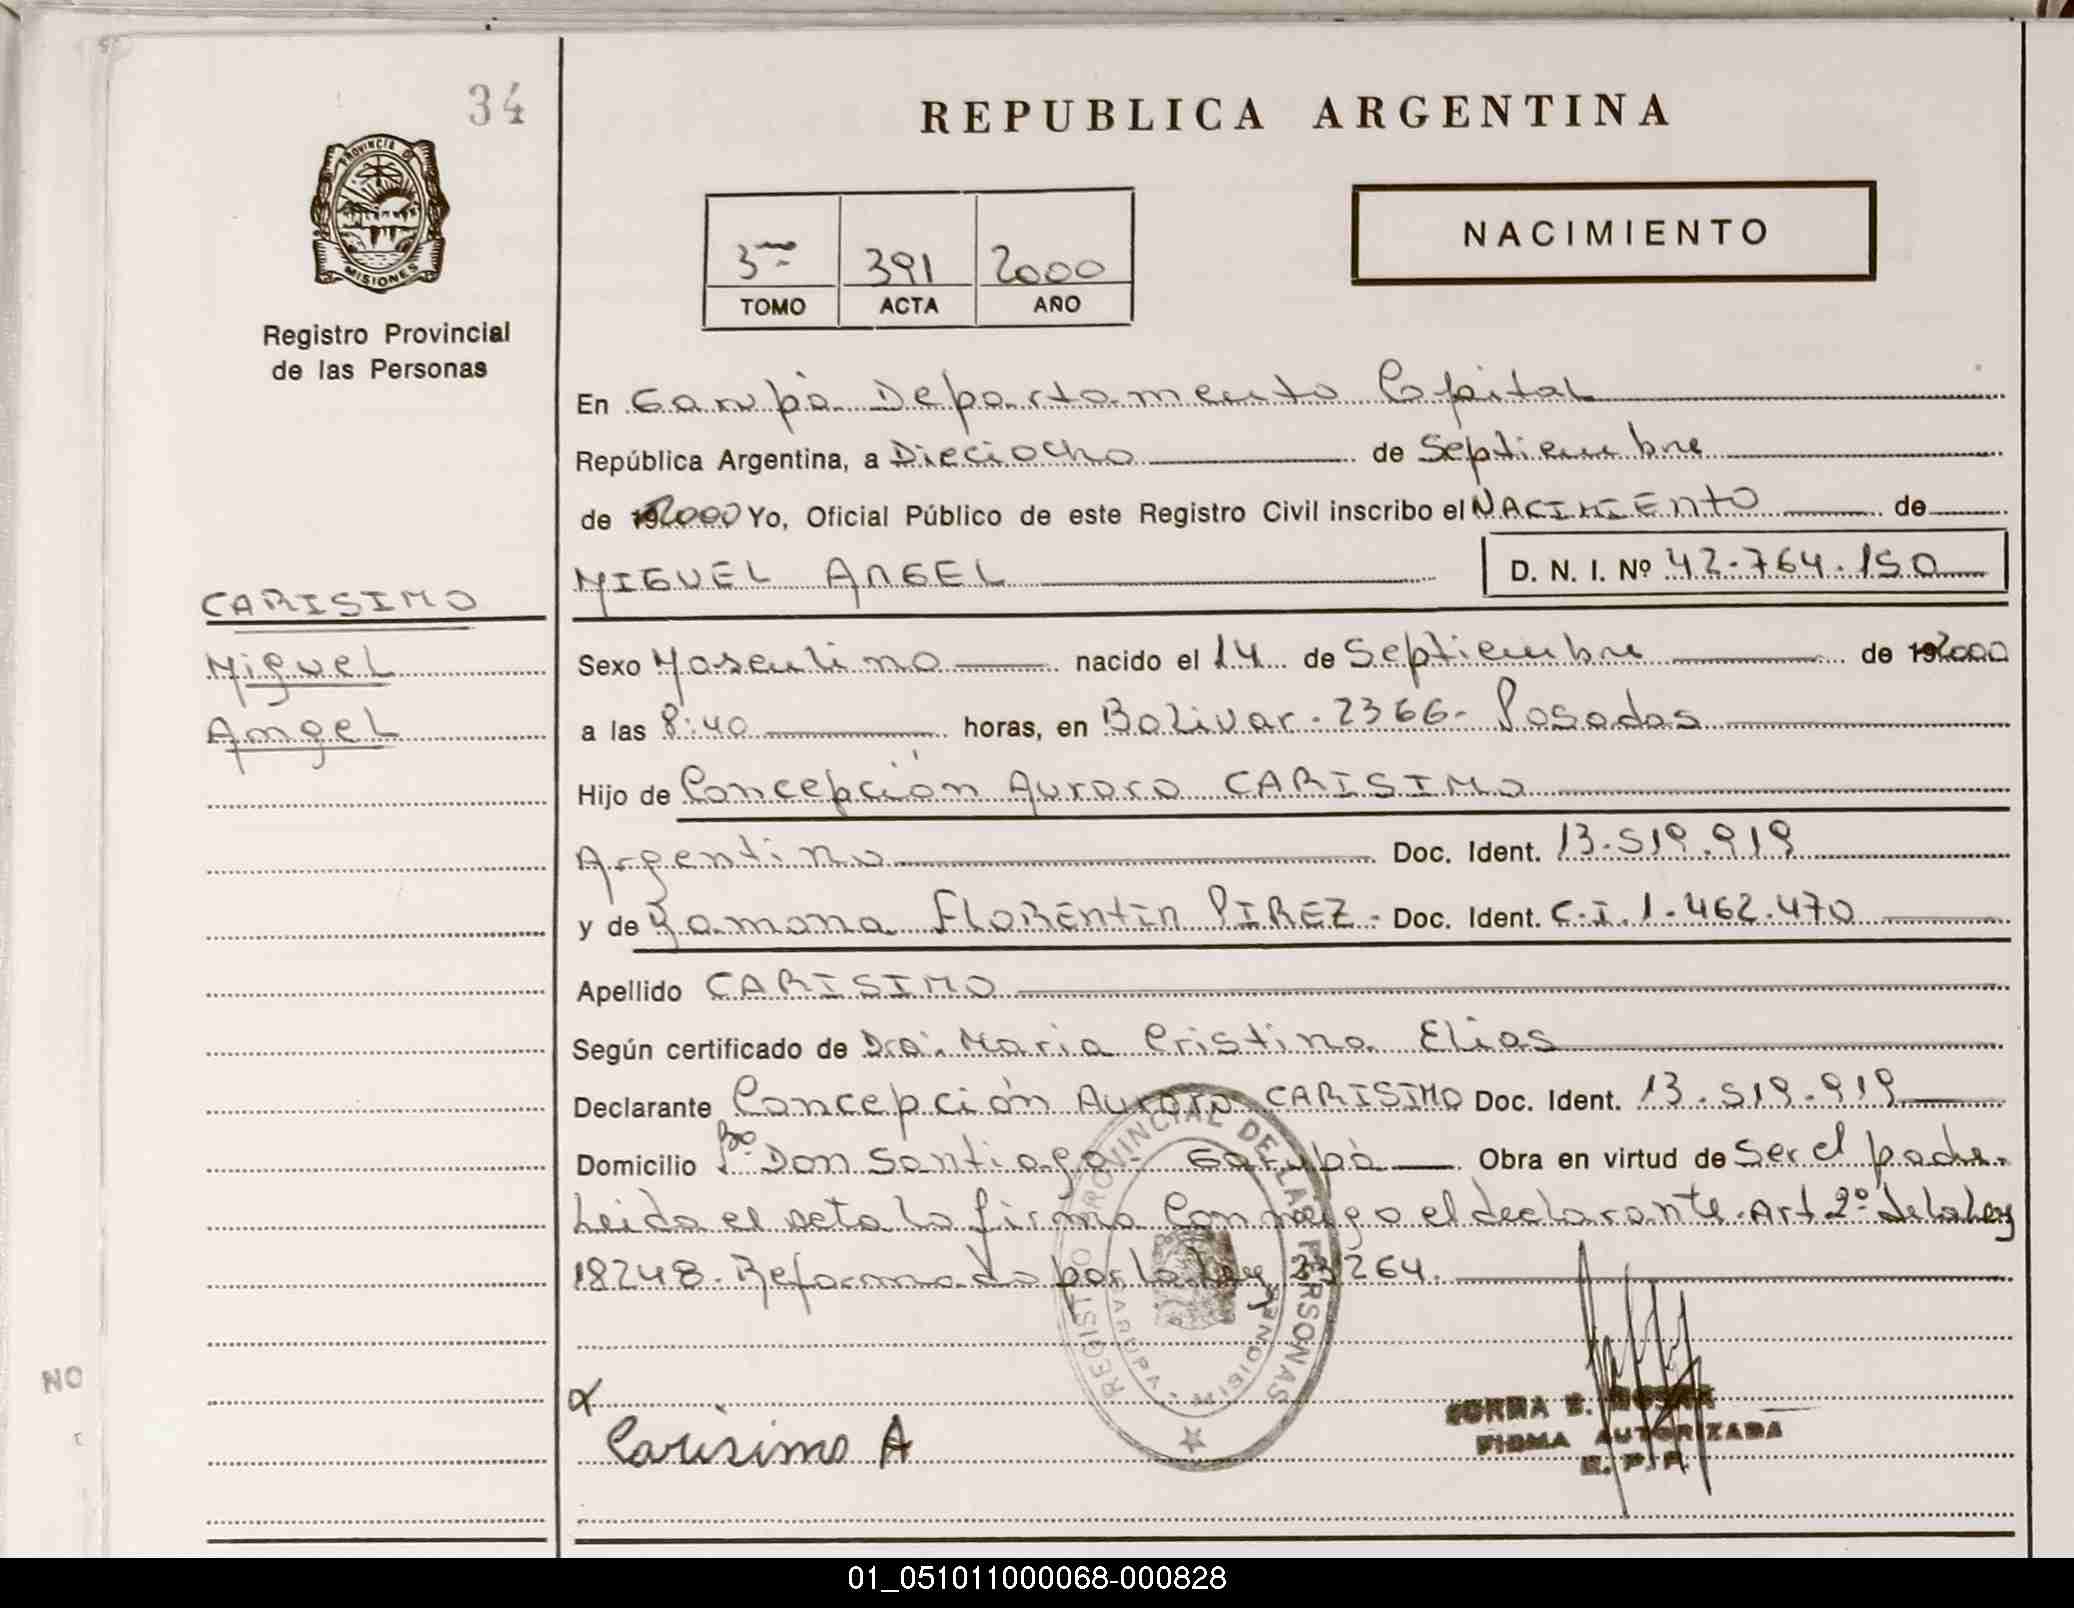 34
REPUBLICA ARGENTINA
PROVINCIA DE MISIONES
Registro Provincial
de las Personas
NACIMIENTO
3ro 391 2000
TOMO ACTA AÑO
En Garupà Departamento Capital
República Argentina, a Dieciocho de Septiembre
de 2000 Yo, Oficial Público de este Registro Civil inscribo el NACIMIENTO de
MIGUEL ANGEL D. N. I. Nº 42.764.150
CARISIMO
Miguel
Angel
Sexo Masculino nacido el 14 de Septiembre de 2000
a las 8:40 horas, en Bolivar. 2366- Posadas
Hijo de Concepción Aurora CARISIMO
Argentino Doc. Ident. 13.519.919
y de Ramona FLORENTIN PIREZ- Doc. Ident. C.I. 1.462.470
Apellido CARISIMO
Según certificado de Dra. Maria Cristina Elias
Declarante Concepción Aurora CARISIMO Doc. Ident. 13.519.919
Domicilio Bº Don Santiago Garupà Obra en virtud de Ser el padre.
Leida el acta la firma Conmigo el declarante. Art 2º de la Ley
18248. Reformado por la Ley 23264.
REGISTRO PROVINCIAL DE LAS PERSONAS
GARUPA
NO
Carisimo A
FIRMA AUTORIZADA
R. P. P.
01_051011000068-000828